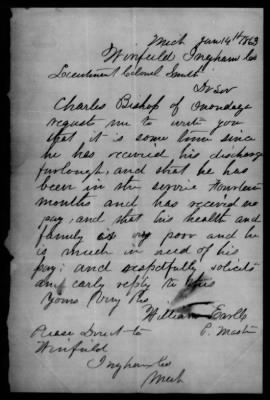 Mich Jan 14th 1863
Winfield Ingham Co
Lieutenant Colonel Smith
Dr Sir
Charles Bishop of Onondaga
request me to write you
that it is some time since
he has received his discharge
furlough, and that he has
been in the service fourteen
months and has received no
pay. and that his health and
family is very poor and he
is much in need of his
pay: and respectfully solicits
an early reply to this
Yours Very Res
William Earll
P. Master
Please Direct to
Winfield
Ingham Co
Mich